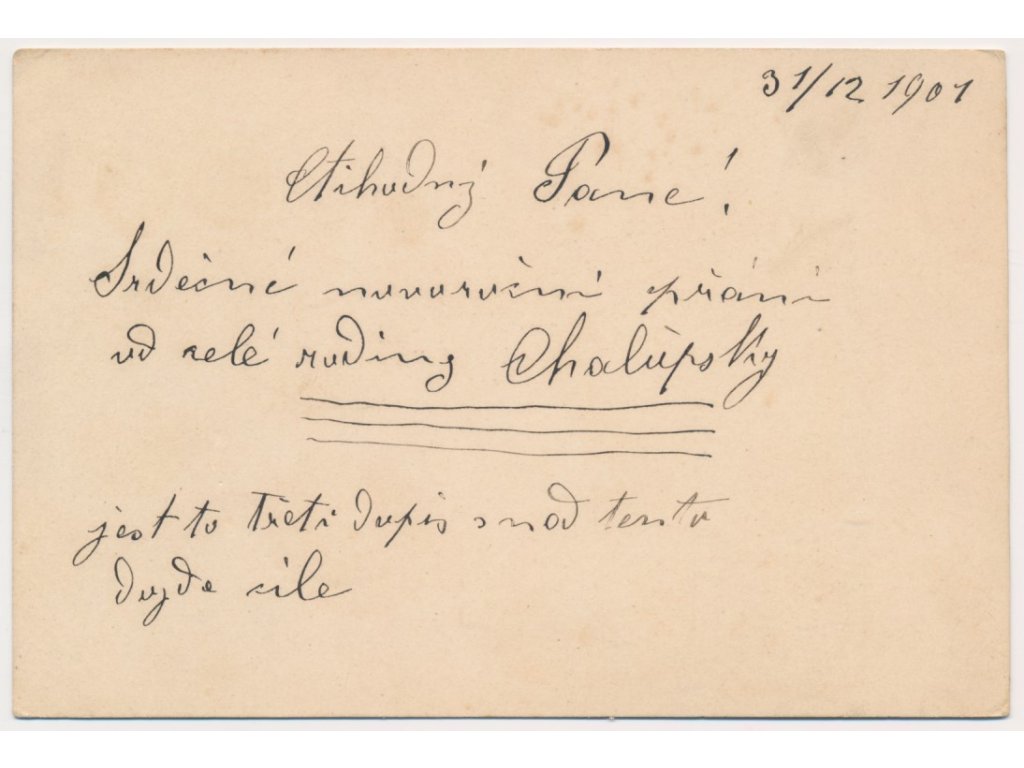 31/12 1901
Ctihodný Pane!
Srdečné novoroční přání
od celé rodiny Chalupsky
jest to třetí dopis snad tento
dojde cíle